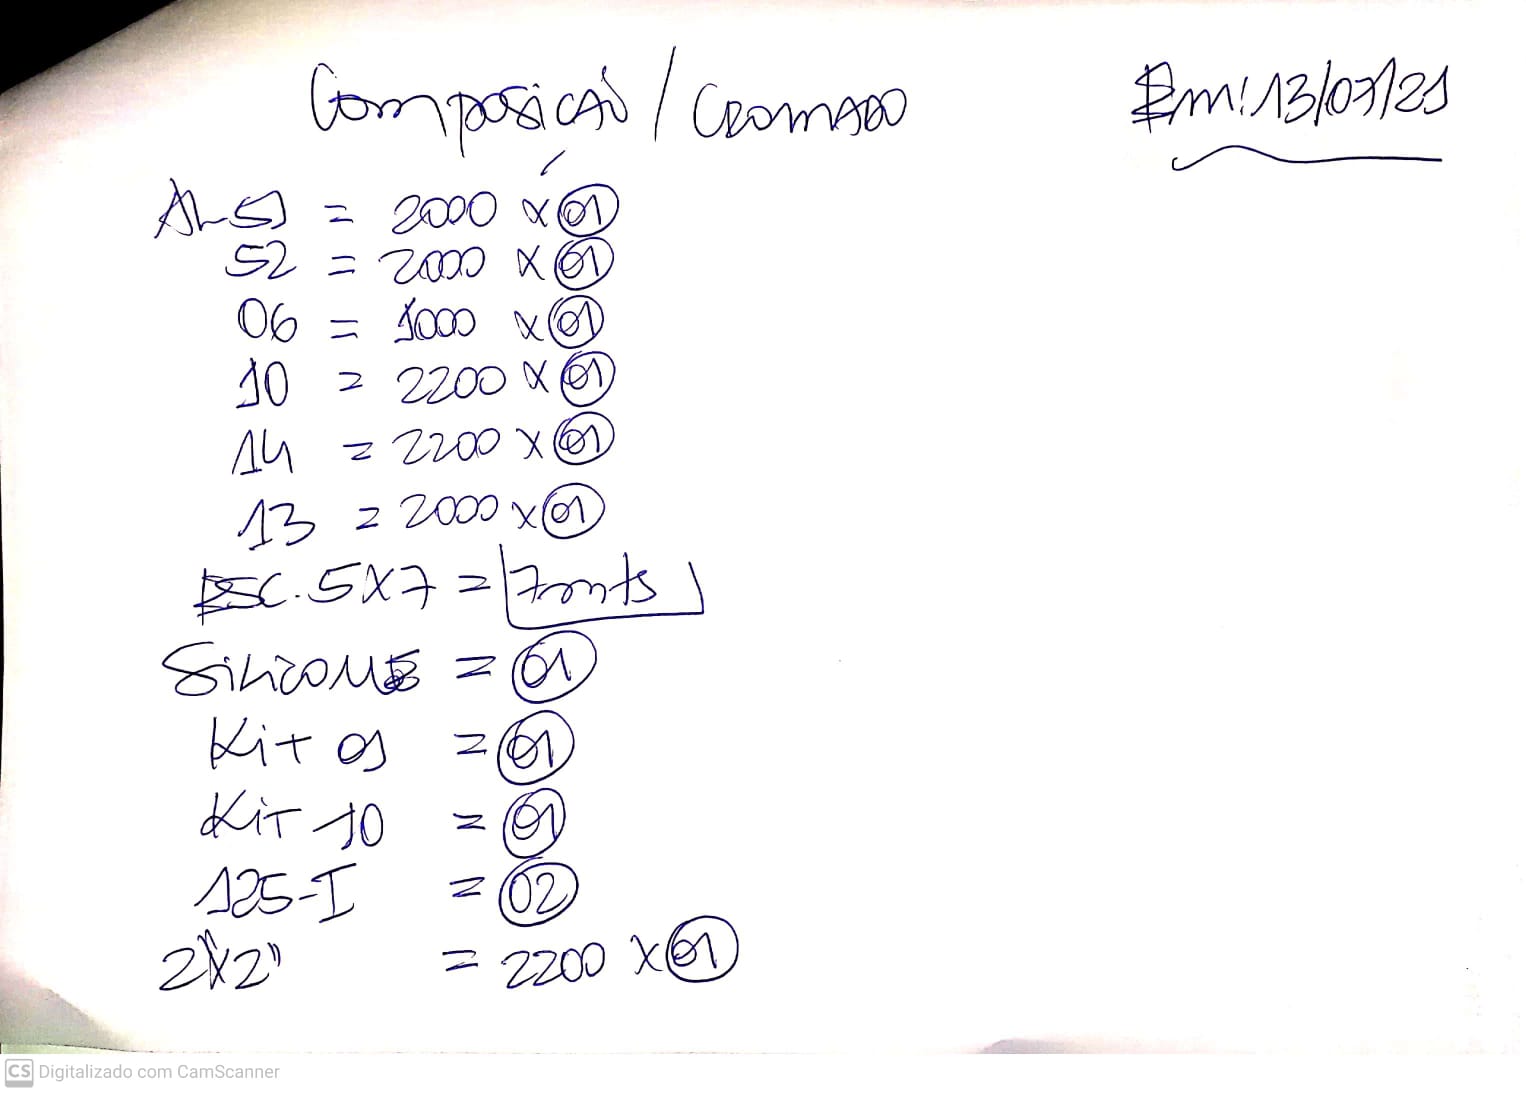 Composição / CROMADO
Em: 13/07/21
AL 51 = 2000 x 01
52 = 2000 x 01
06 = 1000 x 01
10 = 2200 x 01
14 = 2200 x 01
13 = 2000 x 01
ESC. 5X7 = 7 mts
SiLiCONE = 01
Kit 01 = 01
KiT 10 = 01
125-I = 02
2"X2" = 2200 x 01
CS Digitalizado com CamScanner